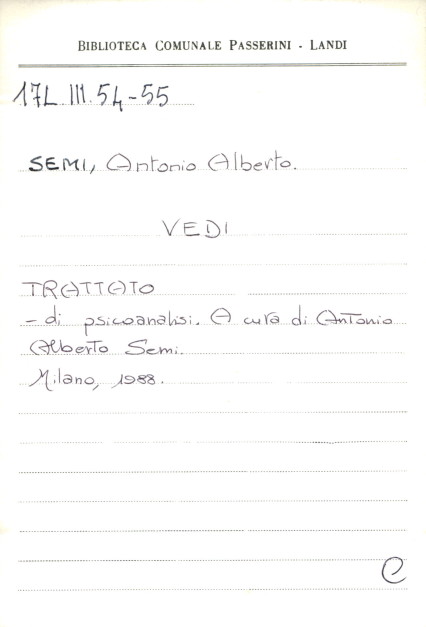 BIBLIOTECA COMUNALE PASSERINI - LANDI
17L III. 54-55
SEMI, Antonio Alberto.
VEDI
TRATTATO
- di psicoanalisi. A cura di Antonio
Alberto Semi.
Milano, 1988.
C